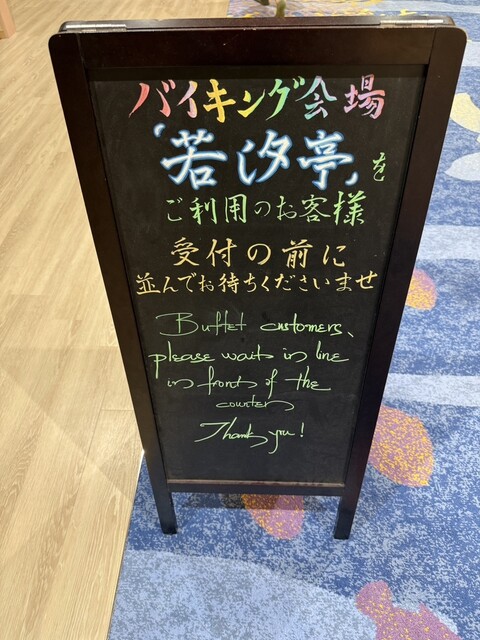 バイキング会場
「若汐亭」を
ご利用のお客様
受付の前に
並んでお待ちくださいませ
Buffet customers、
please wait in line
in front of the
counter
Thank you!